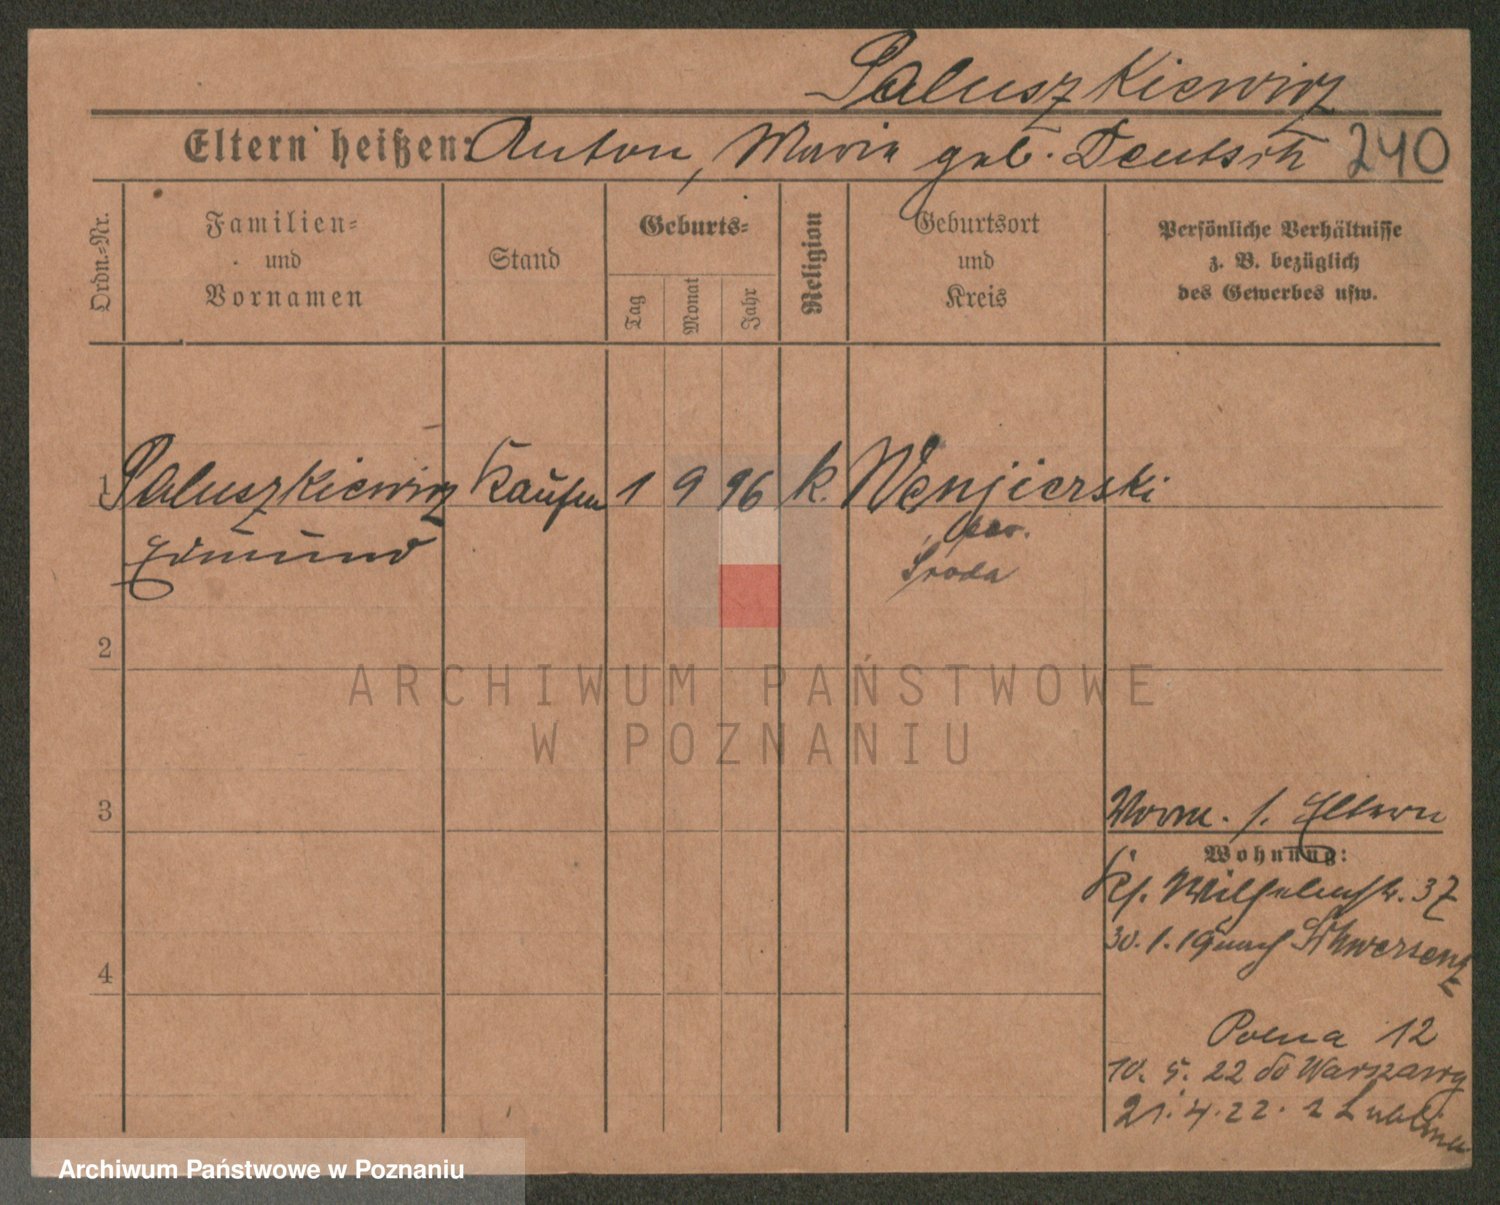 Paluszkiewicz
Eltern heißen: Anton, Maria geb. Deutsch 240
Ordn.-Nr.
Familien-
und
Vornamen
Stand
Geburts-
Tag
Monat
Jahr
Religion
Geburtsort
und
Kreis
Persönliche Verhältnisse
z. B. bezüglich
des Gewerbes usw.
1 Paluszkiewicz Kaufm 1 9 96 k. Wengierski
Edmund
Sroda
2
ARCHIWUM PAŃSTWOWE
W POZNANIU
3
Vorm. s. Eltern
Wohnung:
Wilhelmstr. 37
30. 1. 19 nach Schwersenz
4
Polna 12
10. 5. 22 do Warszawy
21. 4. 22. z Lublina
Archiwum Państwowe w Poznaniu